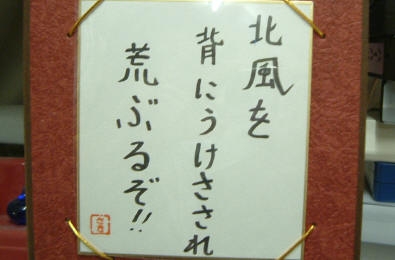 北風を
背にうけさされ
荒ぶるぞ!!